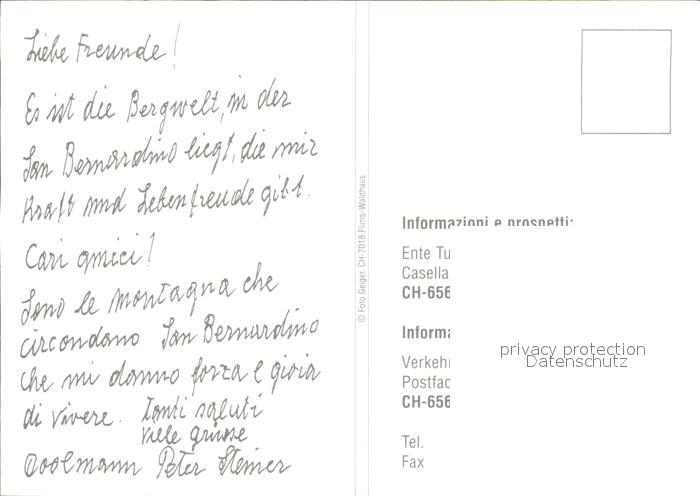 Liebe Freunde!
Es ist die Bergwelt, in der
San Bernardino liegt, die mir
Kraft und Lebenfreude gibt.
Cari amici!
Sono le montagna che
circondano San Bernardino
che mi danno forza e gioia
di vivere. Tanti saluti
Viele grüsse
Peter Steiner
© Foto Geiger, CH-7018 Flims-Waldhaus
Informazioni e prospetti:
Ente Tu
Casella
CH-656
Informa
Verkehr
Postfac
CH-656
Tel.
Fax
privacy protection
Datenschutz